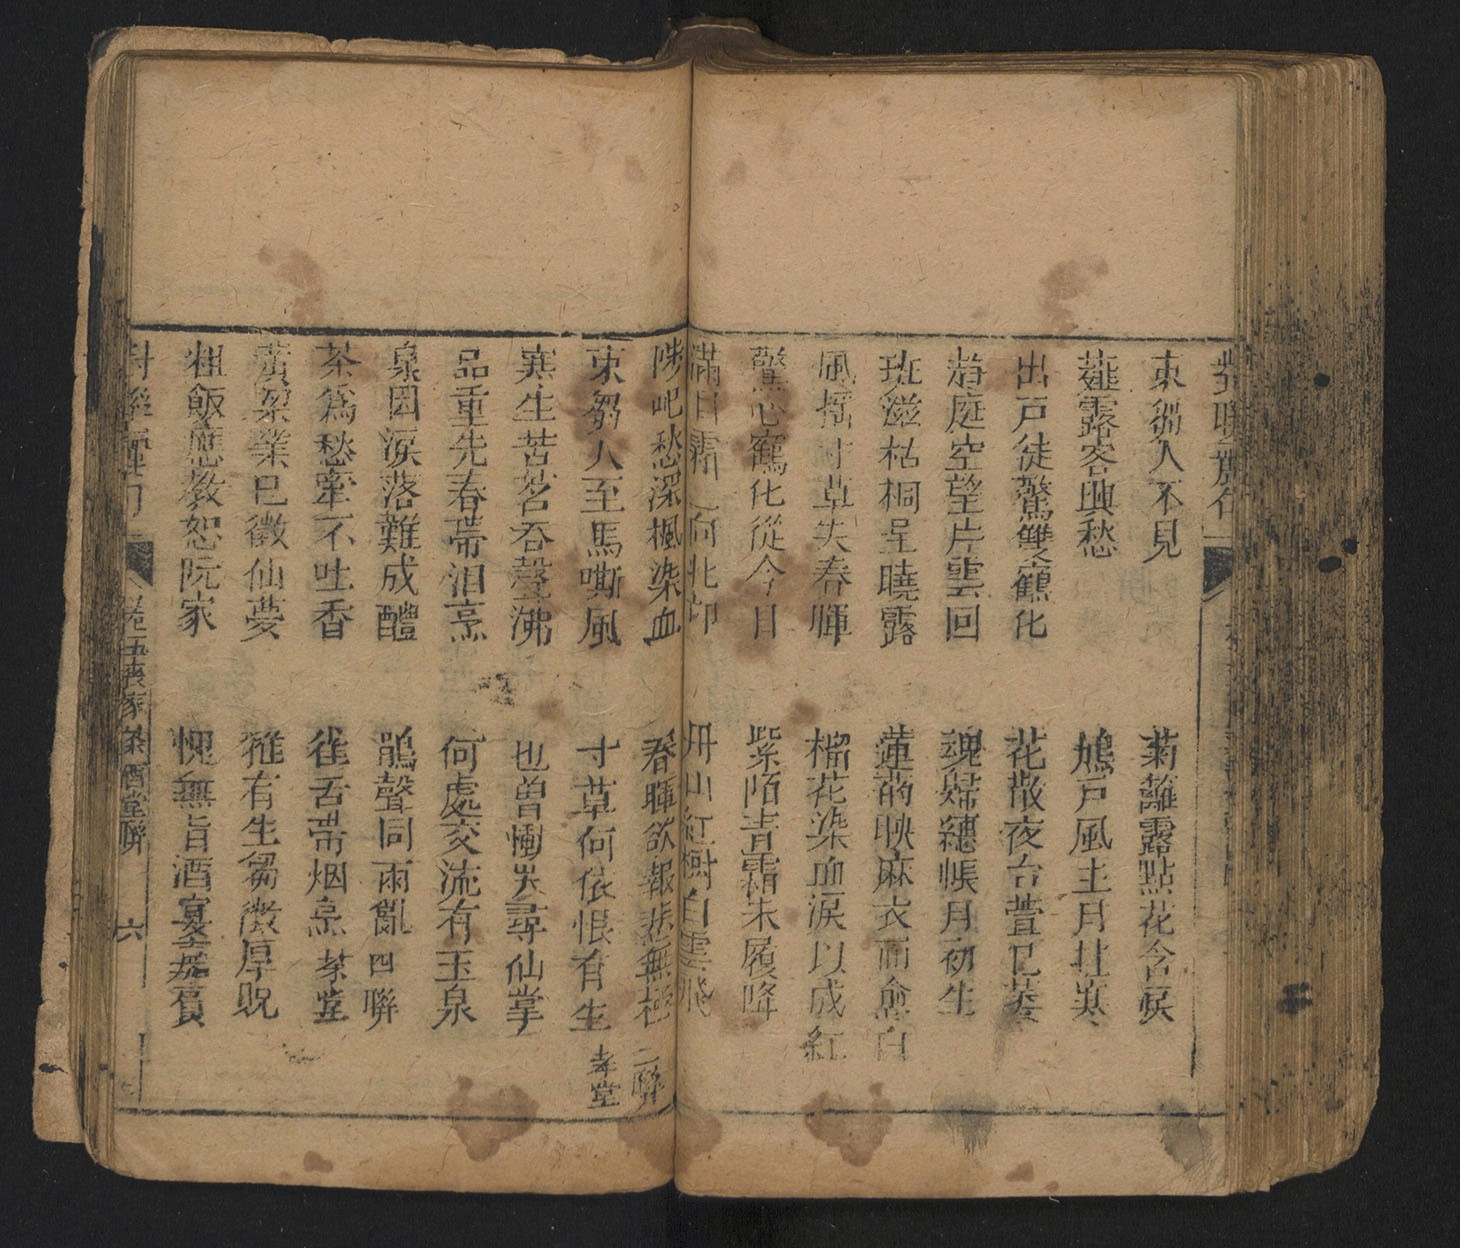 束芻人不見
菊籬露點花含淚
薤露客興愁
鳩戶風主月壯寒
出戶徒驚雙鶴化
花散夜台萱已萎
趨庭空望片雲回
魂歸繐帳月初生
班滋枯桐呈曉露
蓮的映麻衣而愈白
風搖寸草失春暉
榴花染血淚以成紅
驚心鶴化從今日
紫陌青霜未履降
滿目霜 向北邙
丹山紅樹白雲飛
陟屺愁深楓染血
春暉欲報悲無極
二聯
束芻人至馬嘶風
寸草何依恨有生
孝堂
寒生苦茗吞聲沸
也曾慟哭尋仙掌
品重先春帶泪烹
何處交流有玉泉
泉因淚落難成醴
鵑聲同雨亂
四聯
茶爲愁牽不吐香
雀舌帶烟烹
孝堂
黃粱業已徵仙夢
雅有生芻徵厚貺
粗飯應教恕阮家
愧無旨酒宴嘉賓
卷五喪家茶酒堂聯
六